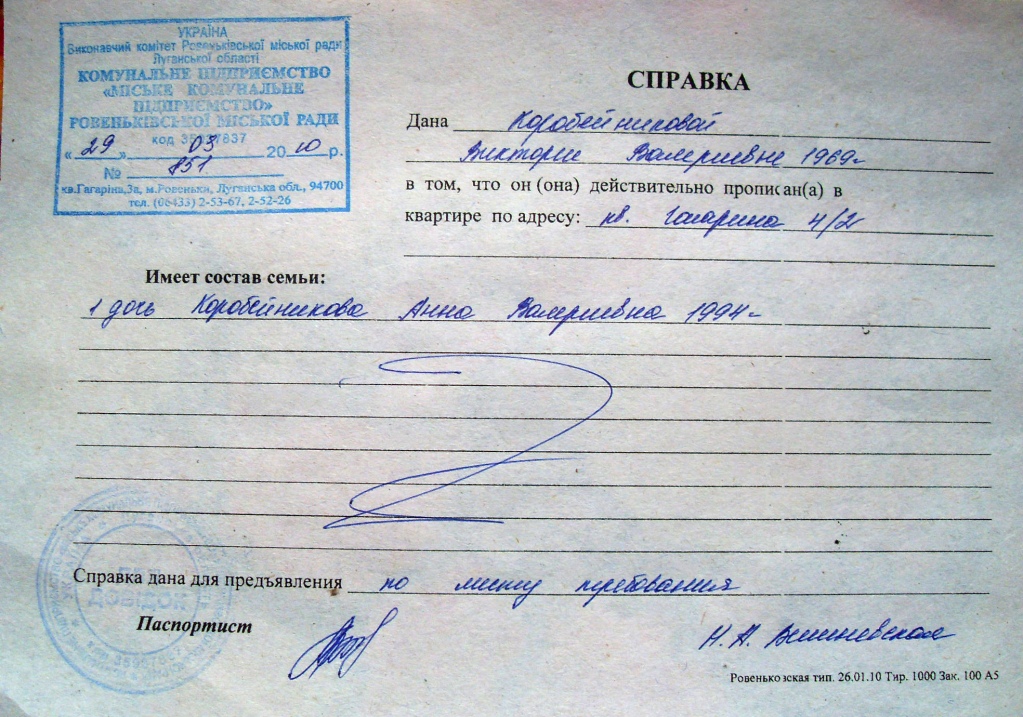 УКРАЇНА
Виконавчий комітет Ровеньківської міської ради
Луганської області
КОМУНАЛЬНЕ ПІДПРИЄМСТВО
«МІСЬКЕ КОМУНАЛЬНЕ
ПІДПРИЄМСТВО»
РОВЕНЬКІВСЬКОЇ МІСЬКОЇ РАДИ
код 35957837
«29» 03 2010 р.
№ 851
кв.Гагаріна,3а, м.Ровеньки, Луганська обл., 94700
тел. (06433) 2-53-67, 2-52-26
СПРАВКА
Дана Коробейниковой
Виктории Валериевне 1969г
в том, что он (она) действительно прописан(а) в
квартире по адресу: кв. Гагарина 4/2
Имеет состав семьи:
1 дочь Коробейникова Анна Валериевна 1994г
Справка дана для предъявления по месту требования
ДЛЯ
ДОВІДОК
Паспортист
Н. А. Вишневская
Ровеньковская тип. 26.01.10 Тир. 1000 Зак. 100 А5